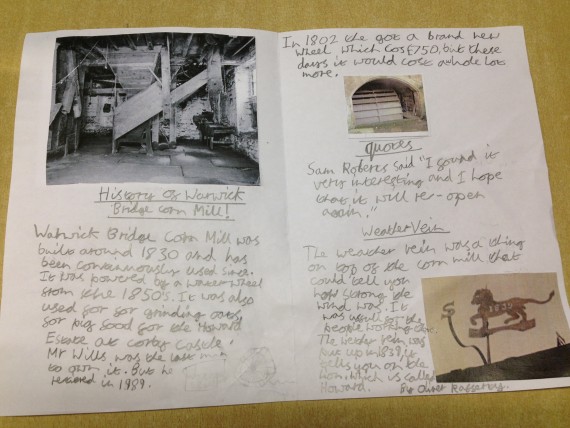 History Of Warwick
Bridge Corn Mill!
Warwick Bridge Corn Mill was
built around 1830 and has
been contenuously used since.
It was powered by a water wheel
from the 1850s. It was also
used for for grinding oats
for pig food for the Howard
Estate at corby Castle.
Mr Wills was the last man
to own it. But he
retiered in 1989.
In 1802 the got a brand new
wheel, which cost £750, but these
days it would cost a whole lot
more.
Quotes
Sam Roberts Said "I found it
very interesting and I hope
that it will re-open
again."
Weather Vein
The weather vein was a thing
on top of the corn mill that
could tell you
how strong the
wind was. It
was usefull for the
people working there.
The weather vein was
put up in 1839, it
tells you on the
lion, which is called
Howard.
By Oliver Rafferty.
S
1839